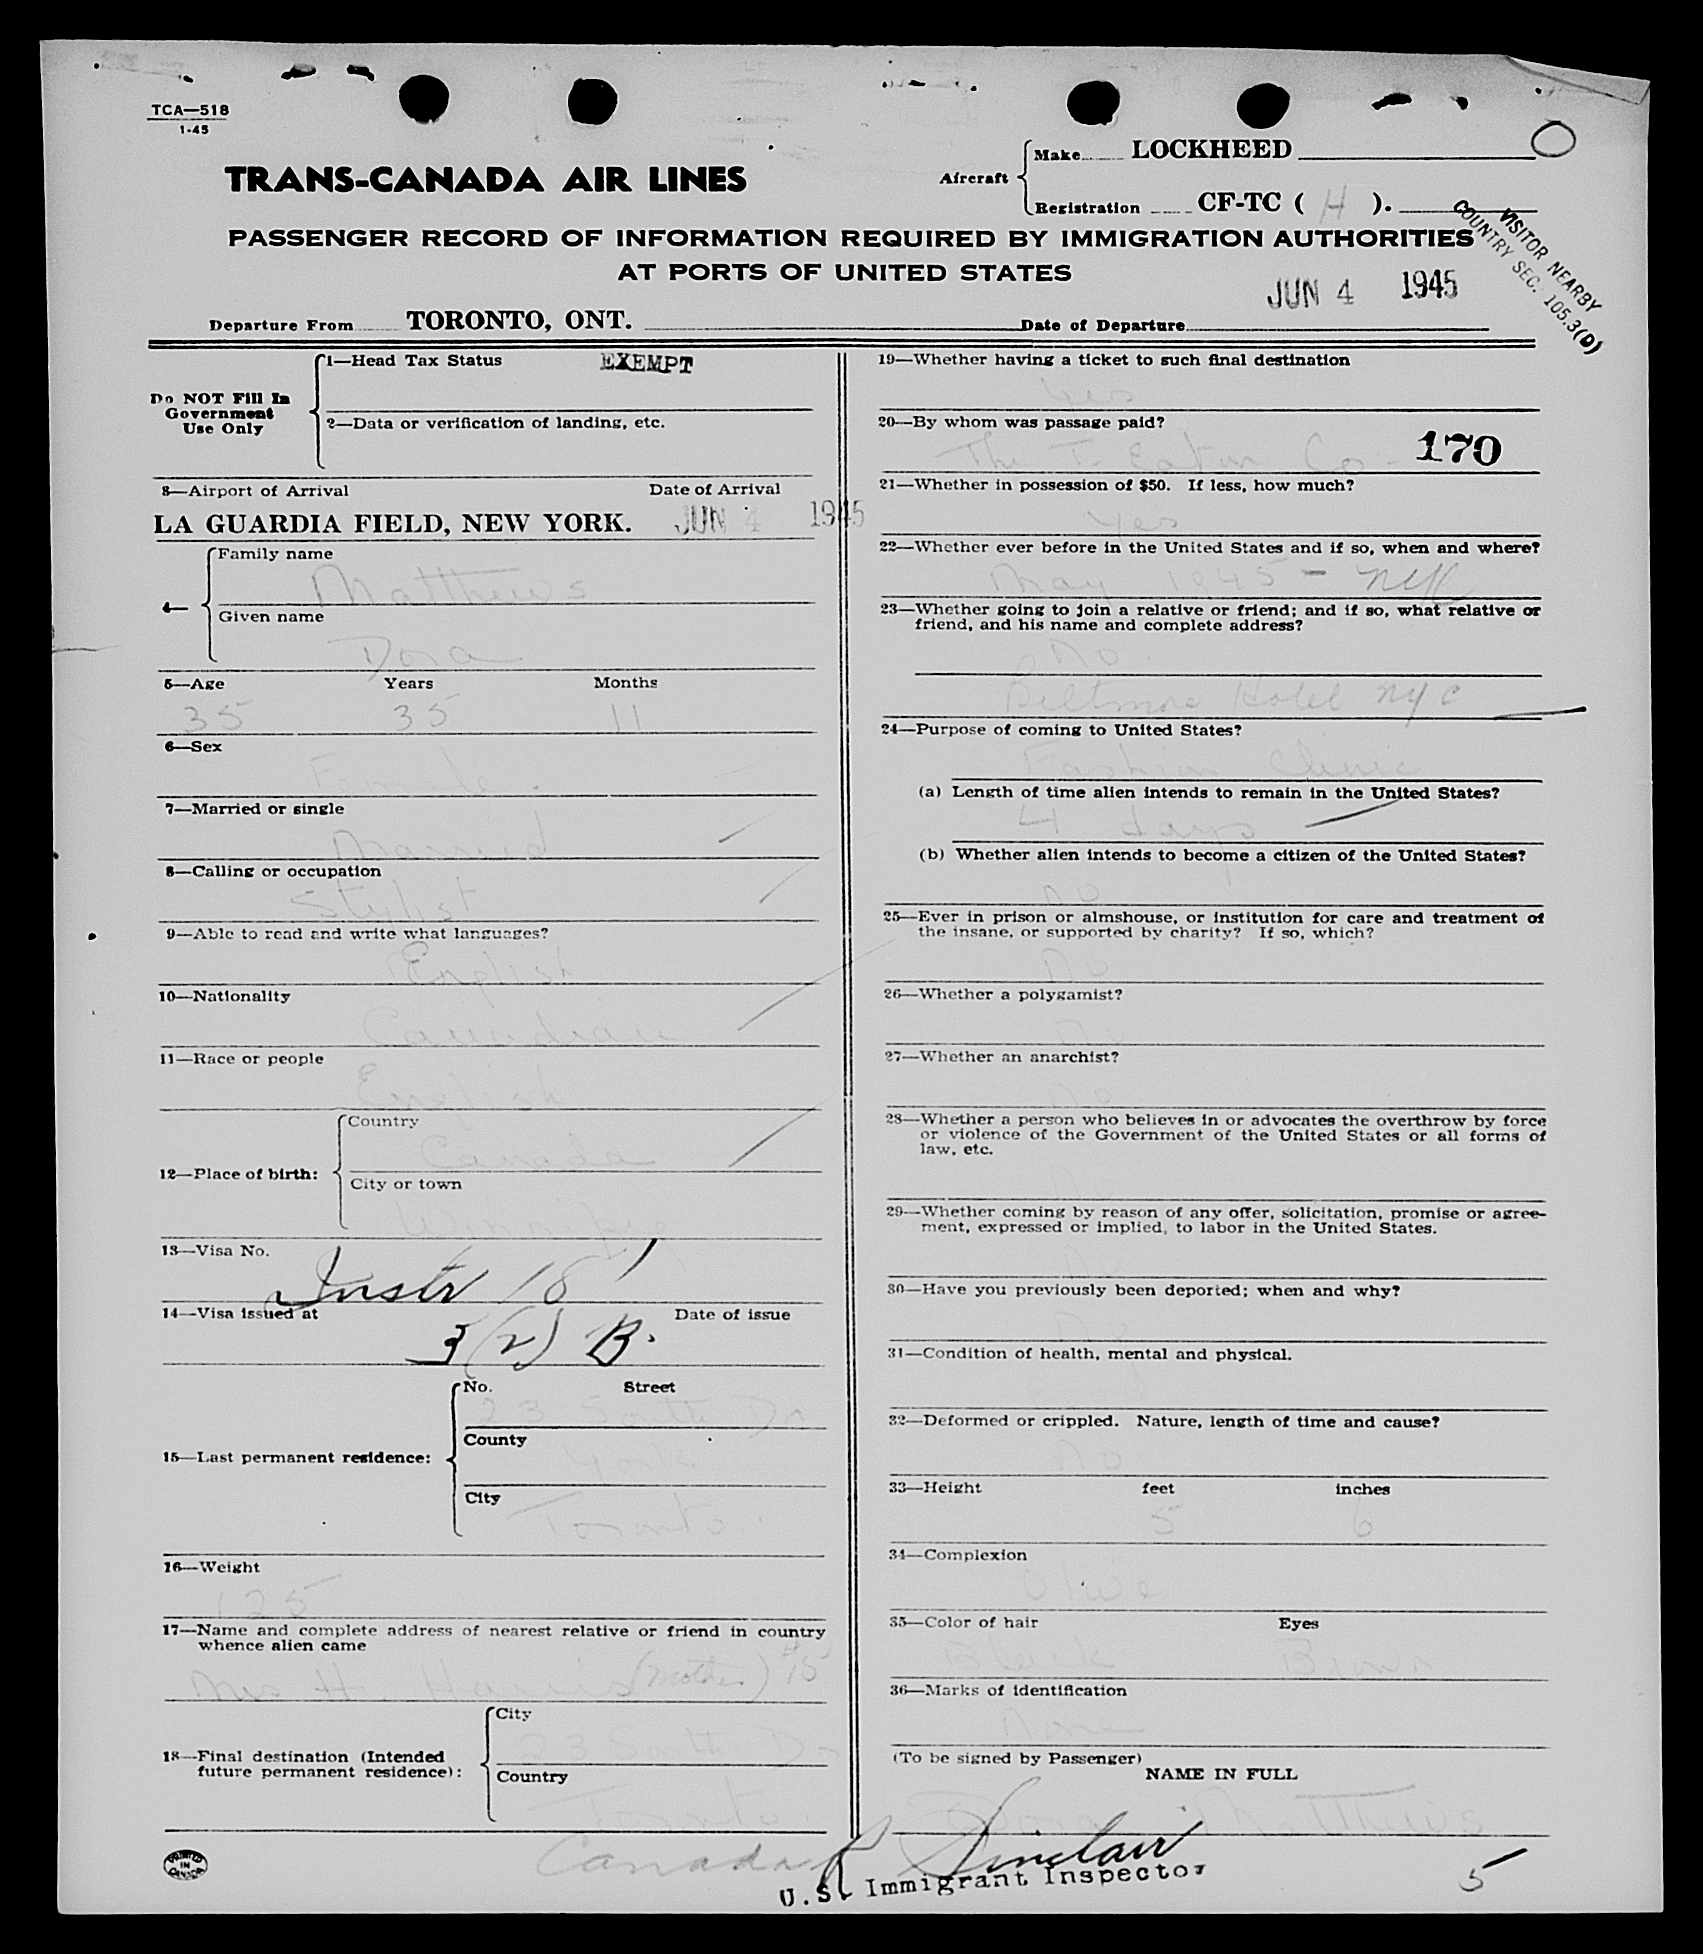 TCA—518
1-45
TRANS-CANADA AIR LINES
Aircraft
Make LOCKHEED
Registration CF-TC ( H ).
PASSENGER RECORD OF INFORMATION REQUIRED BY IMMIGRATION AUTHORITIES
AT PORTS OF UNITED STATES
VISITOR NEARBY
COUNTRY SEC. 105.3(D)
JUN 4 1945
Departure From TORONTO, ONT. Date of Departure
Do NOT Fill In
Government
Use Only
1—Head Tax Status EXEMPT
2—Data or verification of landing, etc.
3—Airport of Arrival Date of Arrival
LA GUARDIA FIELD, NEW YORK. JUN 4 1945
4—
Family name
Matthews
Given name
Dora
5—Age Years Months
35 35 11
6—Sex
Female
7—Married or single
Married
8—Calling or occupation
Stylist
9—Able to read and write what languages?
English
10—Nationality
Canadian
11—Race or people
English
12—Place of birth:
Country
Canada
City or town
Winnipeg
13—Visa No.
Instr 18
14—Visa issued at Date of issue
3 (2) B.
15—Last permanent residence:
No. Street
23 South Dr
County
York
City
Toronto
16—Weight
125
17—Name and complete address of nearest relative or friend in country
whence alien came
Mrs H. Harris (mother) #15
18—Final destination (Intended
future permanent residence):
City
23 South Dr
Country
Toronto
Canada
PRINTED
IN
CANADA
19—Whether having a ticket to such final destination
Yes
20—By whom was passage paid?
The T. Eaton Co. 170
21—Whether in possession of $50. If less, how much?
Yes
22—Whether ever before in the United States and if so, when and where?
May 1945 - NYC
23—Whether going to join a relative or friend; and if so, what relative or
friend, and his name and complete address?
No.
Biltmore Hotel NYC
24—Purpose of coming to United States?
Fashion Clinic
(a) Length of time alien intends to remain in the United States?
4 days
(b) Whether alien intends to become a citizen of the United States?
no
25—Ever in prison or almshouse, or institution for care and treatment of
the insane, or supported by charity? If so, which?
No
26—Whether a polygamist?
No
27—Whether an anarchist?
No
28—Whether a person who believes in or advocates the overthrow by force
or violence of the Government of the United States or all forms of
law, etc.
No
29—Whether coming by reason of any offer, solicitation, promise or agree-
ment, expressed or implied, to labor in the United States.
No
30—Have you previously been deported; when and why?
No
31—Condition of health, mental and physical.
32—Deformed or crippled. Nature, length of time and cause?
No
33—Height feet inches
5 6
34—Complexion
Olive
35—Color of hair Eyes
Black Brown
36—Marks of identification
None
(To be signed by Passenger)
NAME IN FULL
Dora Matthews
R Sinclair
U.S. Immigrant Inspector
5